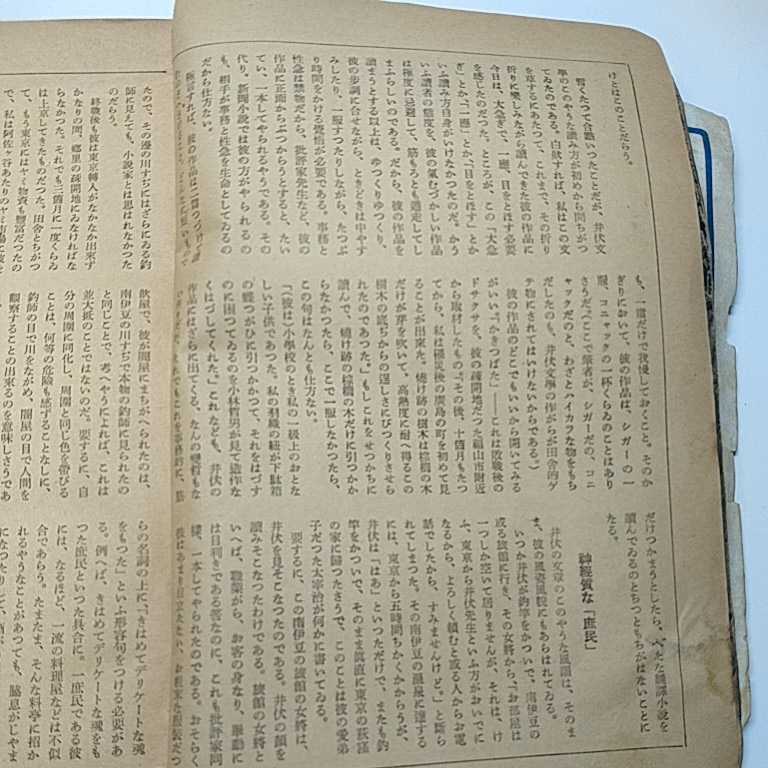 けとはこのことだらう。
暫くたつて合點いつたことだが、井伏文
學のこのやうな讀み方が初めから間ちがつ
てゐたのである。白狀すれば、私はこの文
を草するにあたつて、これまで、その折り
折りに樂しみながら讀んできた彼の作品を
今日は、大急ぎで、一應、目をとほす必要
を感じたのだつた。ところが、この「大急
ぎ」とか「一應」とか「目をとほす」とか
いふ讀み方自身がいけなかつたのだ。かう
いふ讀者の態度を、彼の氣むづかしい作品
は極度に忌避して、筋もろとも遁走してし
まふらしいのである。だから、彼の作品を
讀まうとする以上は、ゆつくりゆつくり、
彼の步調に合せながら、ときどきは中やす
みしたり、一服すつたりしながら、たつぷ
り時間をかける覺悟が必要である。事務と
性急は禁物だから、批評家先生など、彼の
作品に正面からぶつからうとすると、たい
てい、一本してやられるやうである。その
代り、新聞小說では彼の方がやられるの
も、相手が事務と性急を生命としてゐるの
だから仕方ない。
極言すれば、彼の作品は二篇つづけ
も、一遍だけで我慢しておくこと。そのか
ぎりにおいて、彼の作品は、シガーの一
服、コニャックの一杯くらゐのことはあり
さうだ。(ここで筆者が、シガーだの、コニ
ャックだのと、わざとハイカラな物をもち
だしたのも、井伏文學の作がらが田舍的ゲ
テ物にされてはいけないからである。)
彼の作品のどこでもいいから開いてみる
がいい。「かきつばた」――これは敗戰後の
ドサクサを、彼の疎開地だつた福山市附近
から取材したもの。「その後、十箇月もたつ
てから、私は罹災後の廣島の町を初めて見
ることが出來た。燒け跡の樹木は棕櫚の木
だけが芽を吹いて、高熱度に耐へ得るこの
樹木の底ぢからの逞しさにびつくりさせら
れたのであつた。」もしこれをせつかちに
讀んで、燒け跡の棕櫚の木だけに引つかか
らなかつたら、ここで一服しなかつたら、
この句はなんとも仕方ない。
「(彼は)小學校のとき私の一級上のおとな
しい子供であつた。私の羽織の紐が下駄箱
の蝶つがひに引つかかつて、それをはづす
のに困つてゐるのを小林哲男が見て造作な
くはづしてくれた。」これなども、井伏の
作品にはざらに出てくる、なんの變哲もな
だけつかまうとしたら、へたな飜譯小說を
讀んでゐるのとちつともちがはないことに
なる。
神經質な「庶民」
井伏の文章のこのやうな風韻は、そのま
ま、彼の風姿風貌にもあらはれてゐる。
いつか井伏が釣竿をかついで、南伊豆の
或る旅館に行き、その女將から、「お部屋は
一つしか空いて居りませんが、それは、け
ふ、東京から井伏先生といふ方がおいでに
なるから、よろしく賴むと或る人からお電
話でしたから、すみませんけど。」と斷ら
れてしまつた。その南伊豆の溫泉に達する
には、東京から五時間ぢかくかからうが、
井伏は「はあ」といつただけで、またも釣
竿をかついで、そのまま眞直に東京の荻窪
の家に歸つたさうで、このことは彼の愛弟
子だつた太宰治が何かに書いてゐる。
要するに、この南伊豆の旅館の女將は、
井伏を見そこなつたのである。井伏の顏を
讀みそこなつたわけである。旅館の女將と
いへば、職業がら、お客の身なり、擧動に
は目利きである筈なのに、これも批評家同
樣、一本してやられたのである。おそらく
たので、その邊の川すぢにはざらにゐる釣
師に見えても、小說家とは思はれなかつた
のだらう。
終戰後も彼は東京轉入がなかなか出來ず
かなりの間、鄕里の疎開地にゐなければな
らなかつた。それでも三箇月に一度くらゐ
は上京してきたものだつた。田舍とちがつ
て、もう東京にはヤミ物資も豐富だつたの
で、私は阿佐ヶ谷あたりのヤミ市場に彼を
飮屋で、彼が闇屋にまちがへられたのは、
南伊豆の川すぢで本物の釣師に見られたの
と同じことで、考へやうによれば、これは
並大抵のことではないのだ。要するに、自
分の周圍に同化し、周圍と同じ色を帶びる
ことは、何等の危險も感ずることなしに、
釣師の目で川をながめ、闇屋の目で人間を
觀察することの出來るのを意味しさうであ
らの名詞の上に、「きはめてデリケートな魂
をもつた」といふ形容句をつける必要があ
る。例へば、きはめてデリケートな魂をも
つた庶民といつた具合に。一庶民である彼
には、なるほど、一流の料理屋などは不似
合であらう。たまたま、そんな料亭に招か
れるやうなことがあつても、脇息がじやま